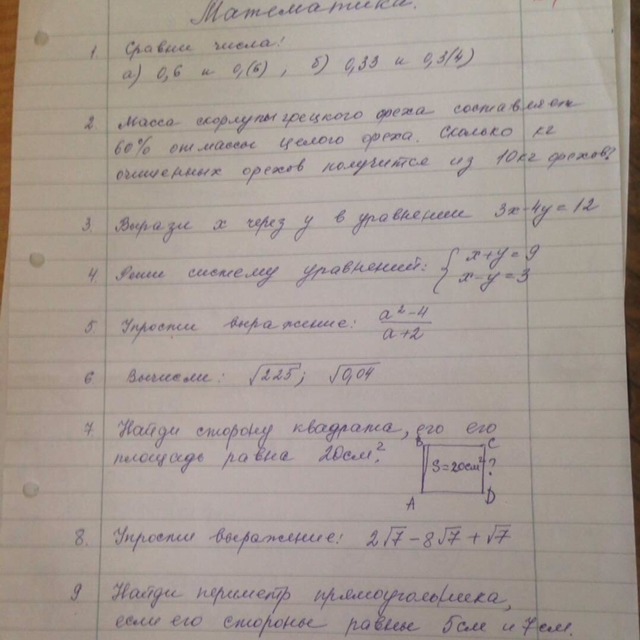 Математика.
1. Сравни числа:
а) 0,6 и 0,(6) , б) 0,33 и 0,3(4)
2. Масса скорлупы грецкого ореха составляет
60% от массы целого ореха. Сколько кг
очищенных орехов получится из 10 кг орехов?
3. Вырази x через y в уравнении 3x-4y=12
4. Реши систему уравнений: { x+y=9
x-y=3
5. Упрости выражение: (a²-4)/(a+2)
6. Вычисли: √225; √0,04
7. Найди сторону квадрата, его его
площадь равна 20см².
B C
S=20см² ?
A D
8. Упрости выражение: 2√7-8√7+√7
9. Найди периметр прямоугольника,
если его стороны равны 5см и 7см.